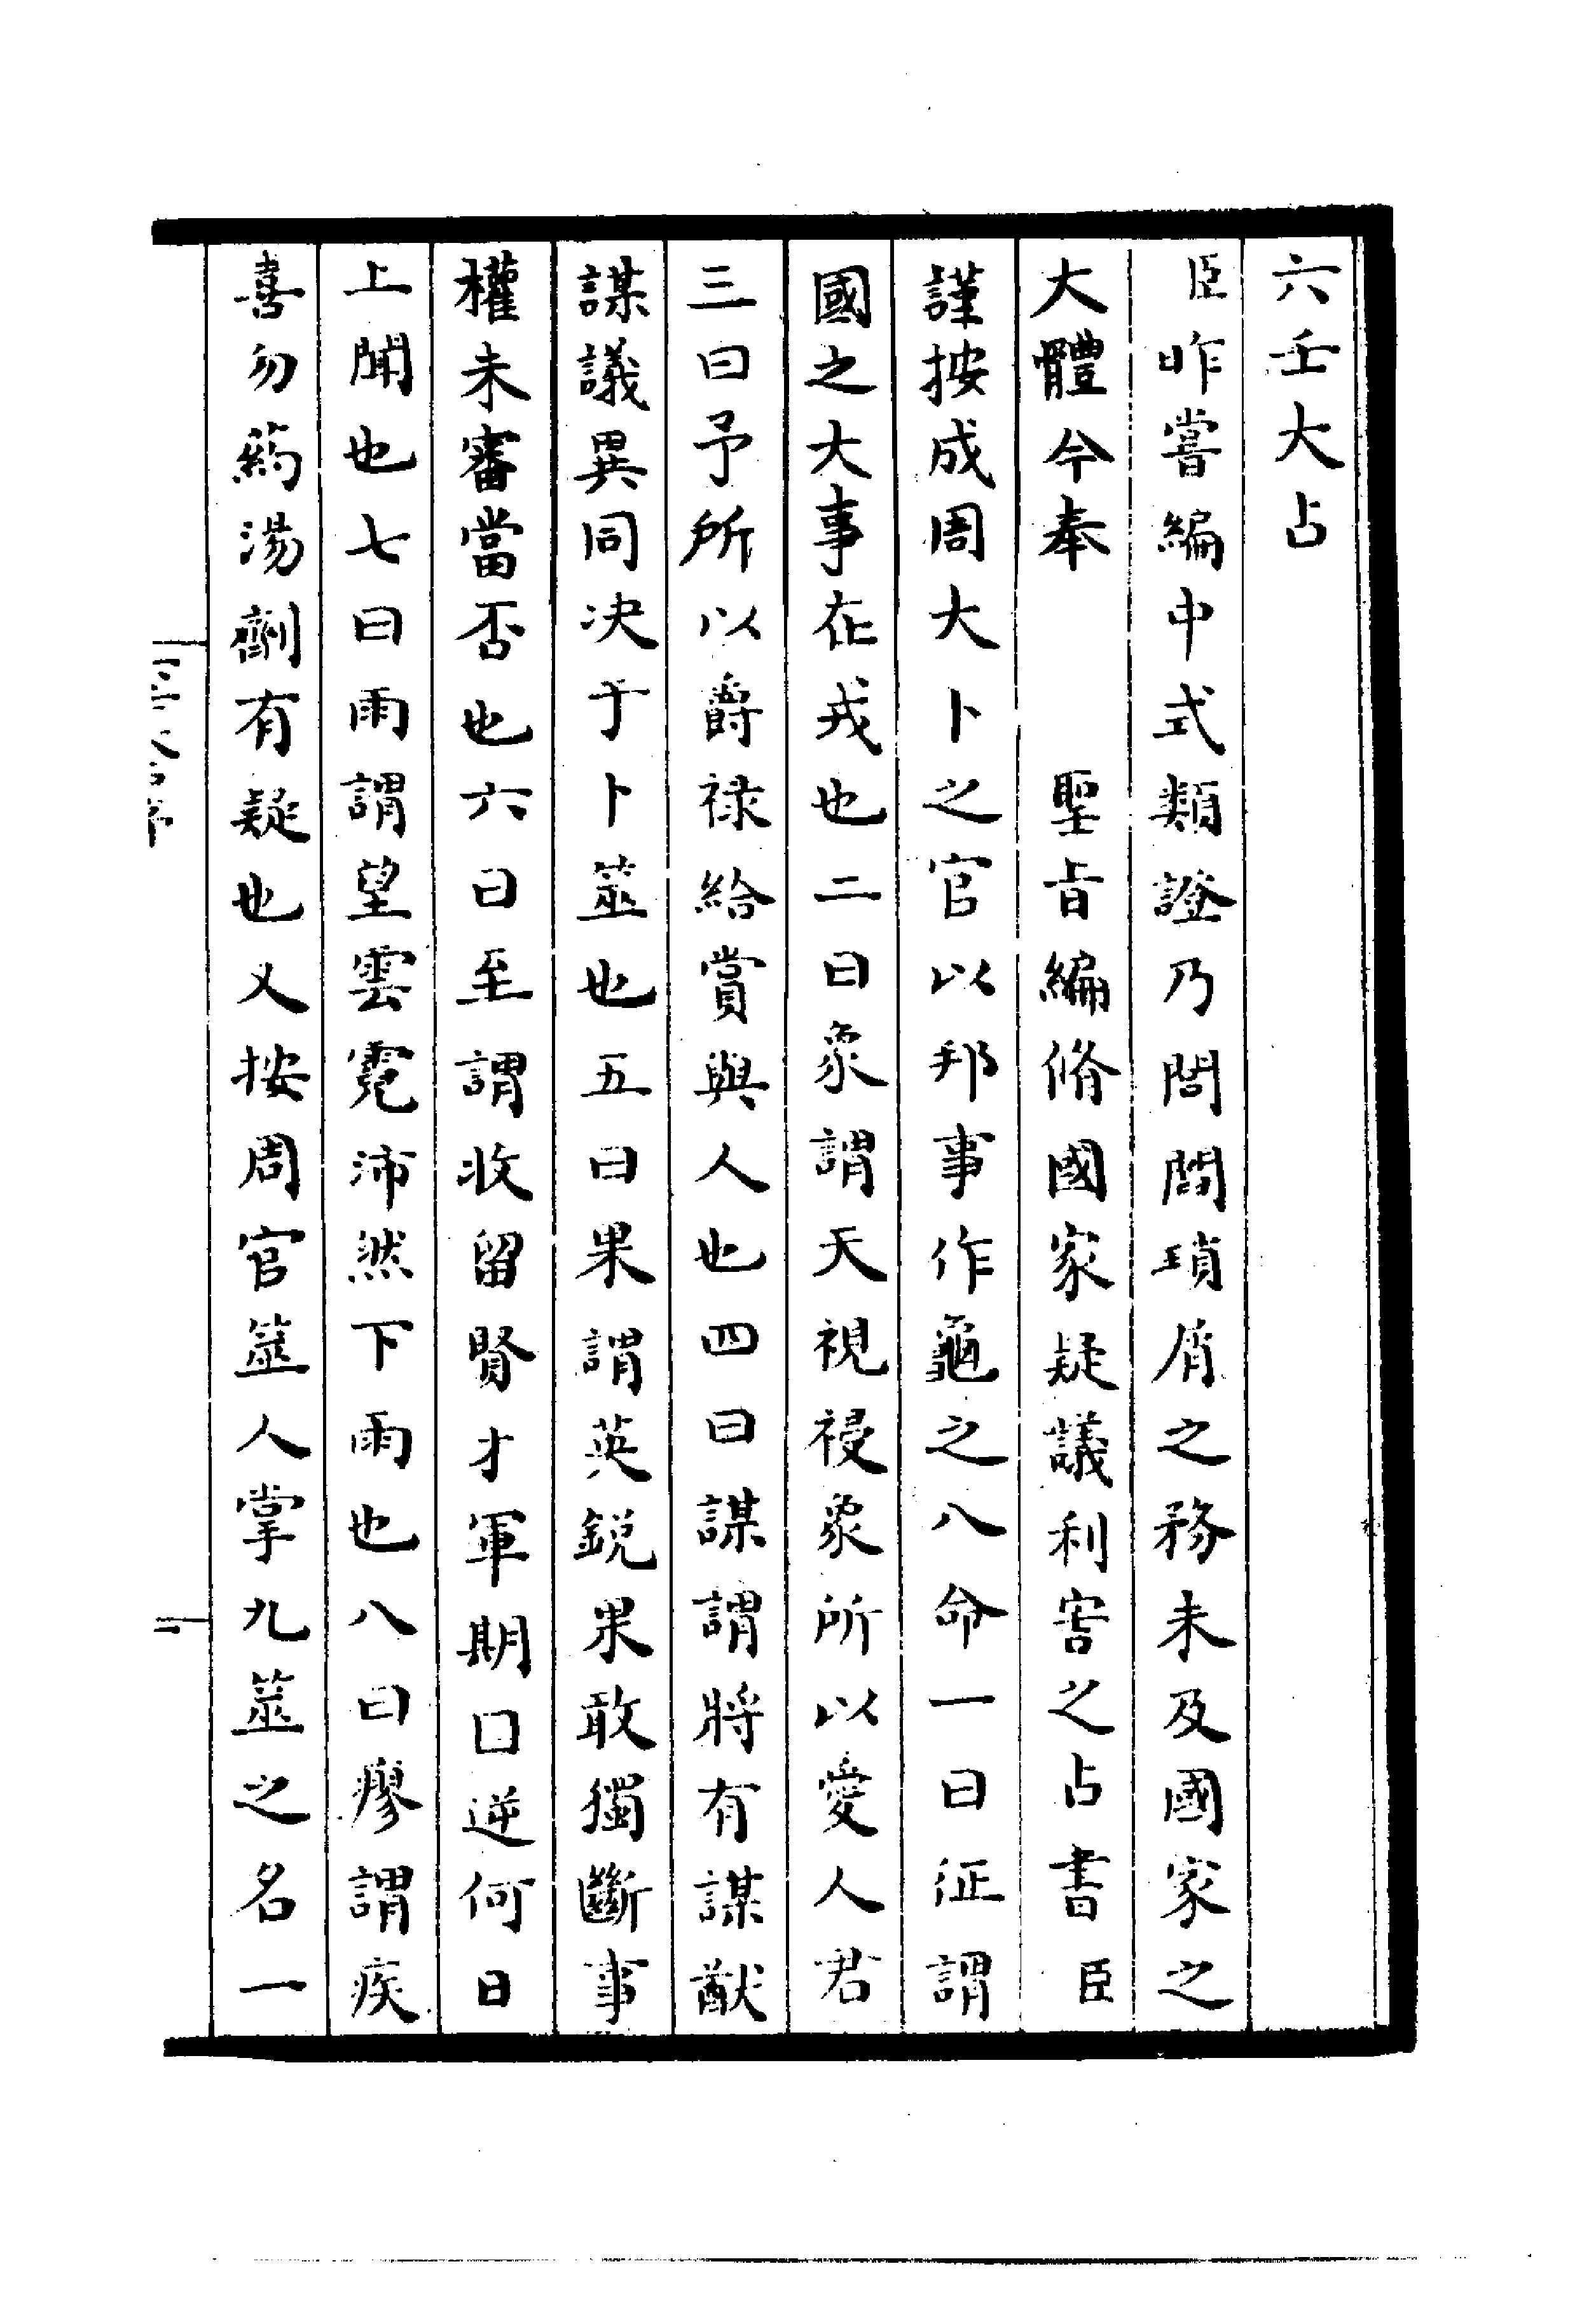 六壬大占
臣昨嘗編中式類證乃問閻瑣屑之務未及國家之
大體今奉　聖旨編脩國家疑議利害之占書臣
謹按成周大卜之官以邦事作龜之八命一曰征謂
國之大事在戎也二曰象謂天視祲象所以愛人君
三曰予所以爵祿給賞與人也四曰謀謂將有謀猷
謀議異同决于卜筮也五曰果謂英銳果敢獨斷事
權未審當否也六曰至謂收留賢才軍期口逆何日
上聞也七曰雨謂望雲霓沛然下雨也八曰瘳謂疾
喜勿药湯劑有疑也又按周官筮人掌九筮之名一